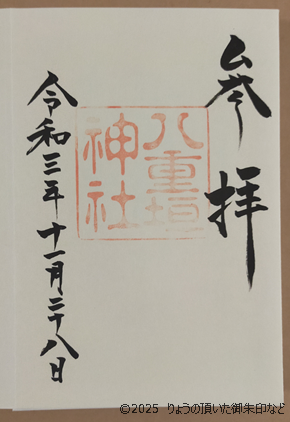 参拝
八重垣
神社
令和三年十一月二十八日
©2025 りょうの頂いた御朱印など